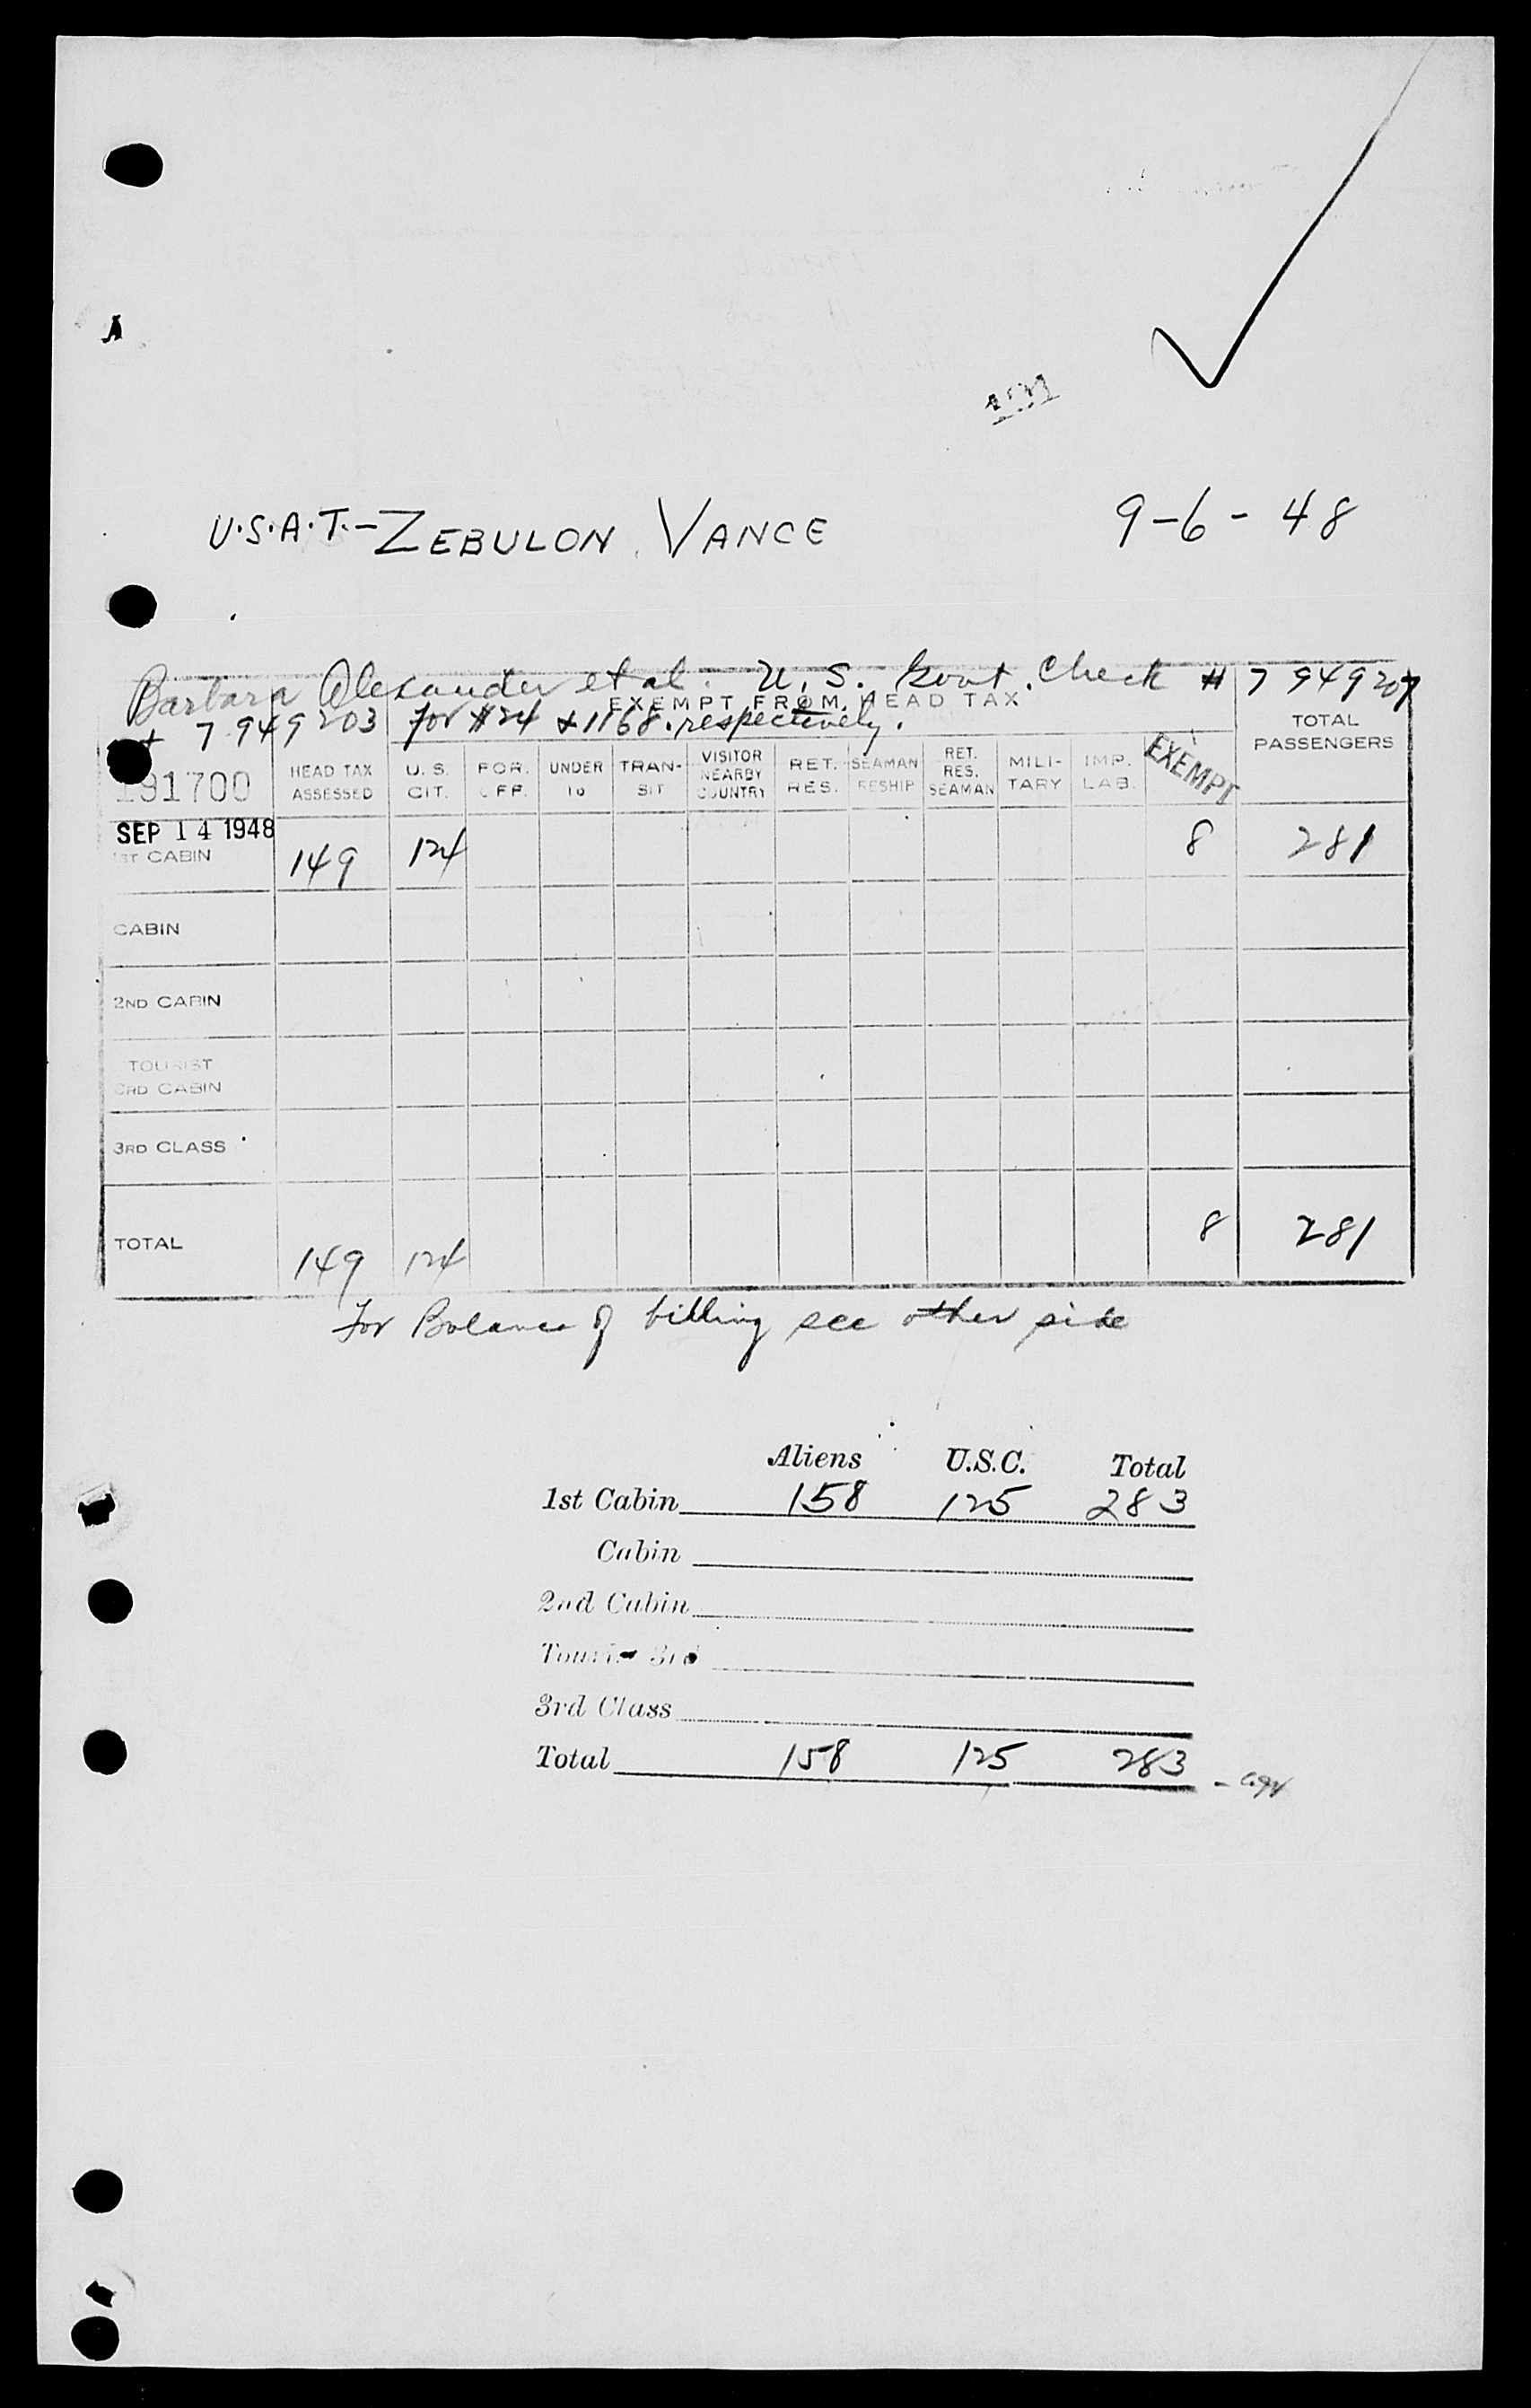 U.S.A.T.-ZEBULON VANCE 9-6-48
Barbara Alexander et al. U.S. Govt. Check # 7 949 207
EXEMPT FROM HEAD TAX
+ 7 949 203 for $24 & 1168. respectively.
TOTAL PASSENGERS
91700 HEAD TAX ASSESSED U.S. CIT. FOR. OFF. UNDER 16 TRAN-SIT VISITOR NEARBY COUNTRY RET. RES. SEAMAN RESHIP RET. RES. SEAMAN MILI-TARY IMP. LAB. EXEMPT
SEP 14 1948
1ST CABIN 149 124 8 281
CABIN
2ND CABIN
TOURIST
3RD CABIN
3RD CLASS
TOTAL 149 124 8 281
For Balance of billing see other side
Aliens U.S.C. Total
1st Cabin 158 125 283
Cabin
2nd Cabin
Tourist 3rd
3rd Class
Total 158 125 283